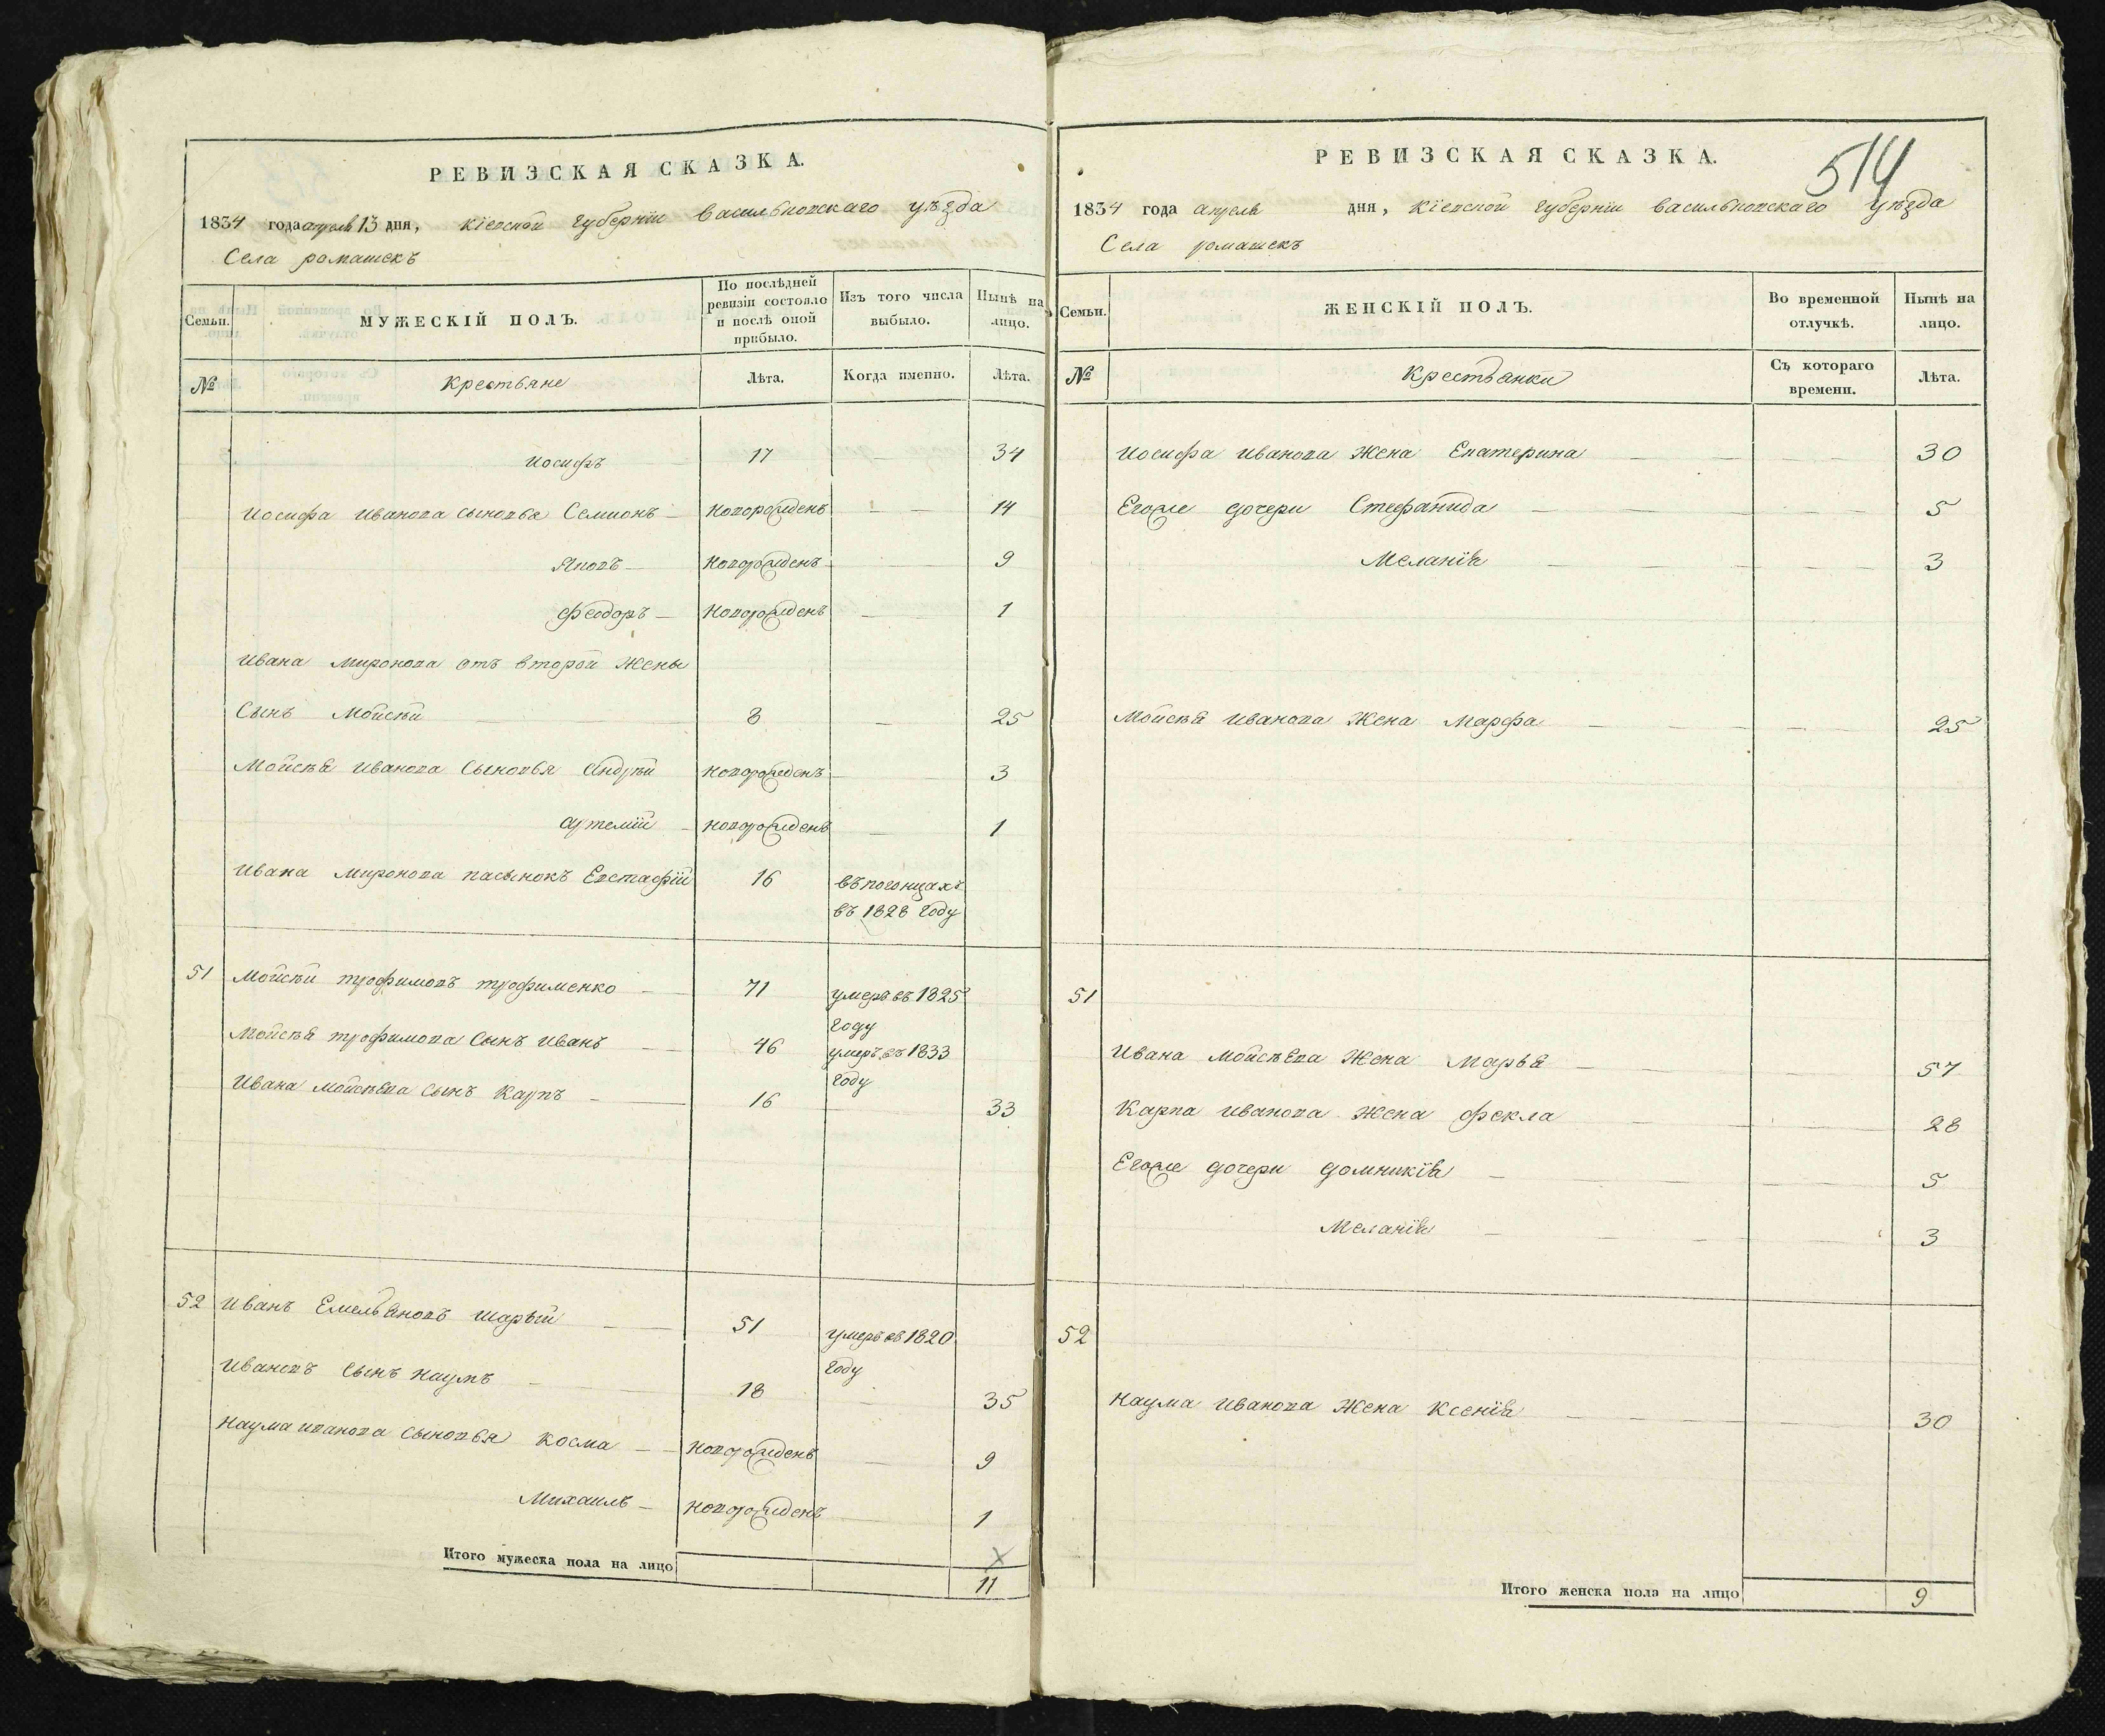 РЕВИЗСКАЯ СКАЗКА.
1834 года апреля 13 дня, Кіевской губерніи васильковскаго уѣзда
Села ромашекъ
Семьи. МУЖЕСКІЙ ПОЛЪ. По послѣдней ревизіи состояло и послѣ оной прибыло. Изъ того числа выбыло. Нынѣ на лицо.
№ Крестьяне Лѣта. Когда именно. Лѣта.
Иосифъ 17 — 34
Иосифа Иванова сыновья Семионъ новорожденъ — 14
Яковъ новорожденъ — 9
Феодоръ новорожденъ — 1
Ивана миронова отъ второй жены
Сынъ Мойсѣй 8 — 25
Мойсѣя Иванова Сыновья Андрѣй новорожденъ — 3
Артемій новорожденъ — 1
Ивана миронова пасынокъ Евстафій 16
въ 1828 году
51 Мойсѣй трофимовъ трофименко 71 умеръ въ 1825
году
Мойсѣя трофимова Сынъ Иванъ 46 умеръ въ 1833
году
Ивана Мойсѣева Сынъ Карпъ 16 — 33
52 Иванъ Емельяновъ шарый 51 умеръ въ 1820
году
Ивановъ Сынъ Наумъ 18 — 35
Наума иванова Сыновья Косма новорожденъ — 9
Михаилъ новорожденъ 1
Итого мужеска пола на лицо 11
РЕВИЗСКАЯ СКАЗКА.
514
1834 года апреля дня, Кіевской губерніи васильковскаго уѣзда
Села ромашекъ
Семьи. ЖЕНСКІЙ ПОЛЪ. Во временной отлучкѣ. Нынѣ на лицо.
№ Крестьянки Съ котораго времени. Лѣта.
Иосифа Иванова Жена Екатерина 30
Егоже дочери Стефанида 5
Меланія 3
Мойсѣя Иванова Жена Марфа 25
51
Ивана Мойсѣева Жена Марья 57
Карпа Иванова Жена Фекла 28
Егоже дочери домникія 5
Меланія 3
52
Наума Иванова Жена Ксенія 30
Итого женска пола на лицо 9